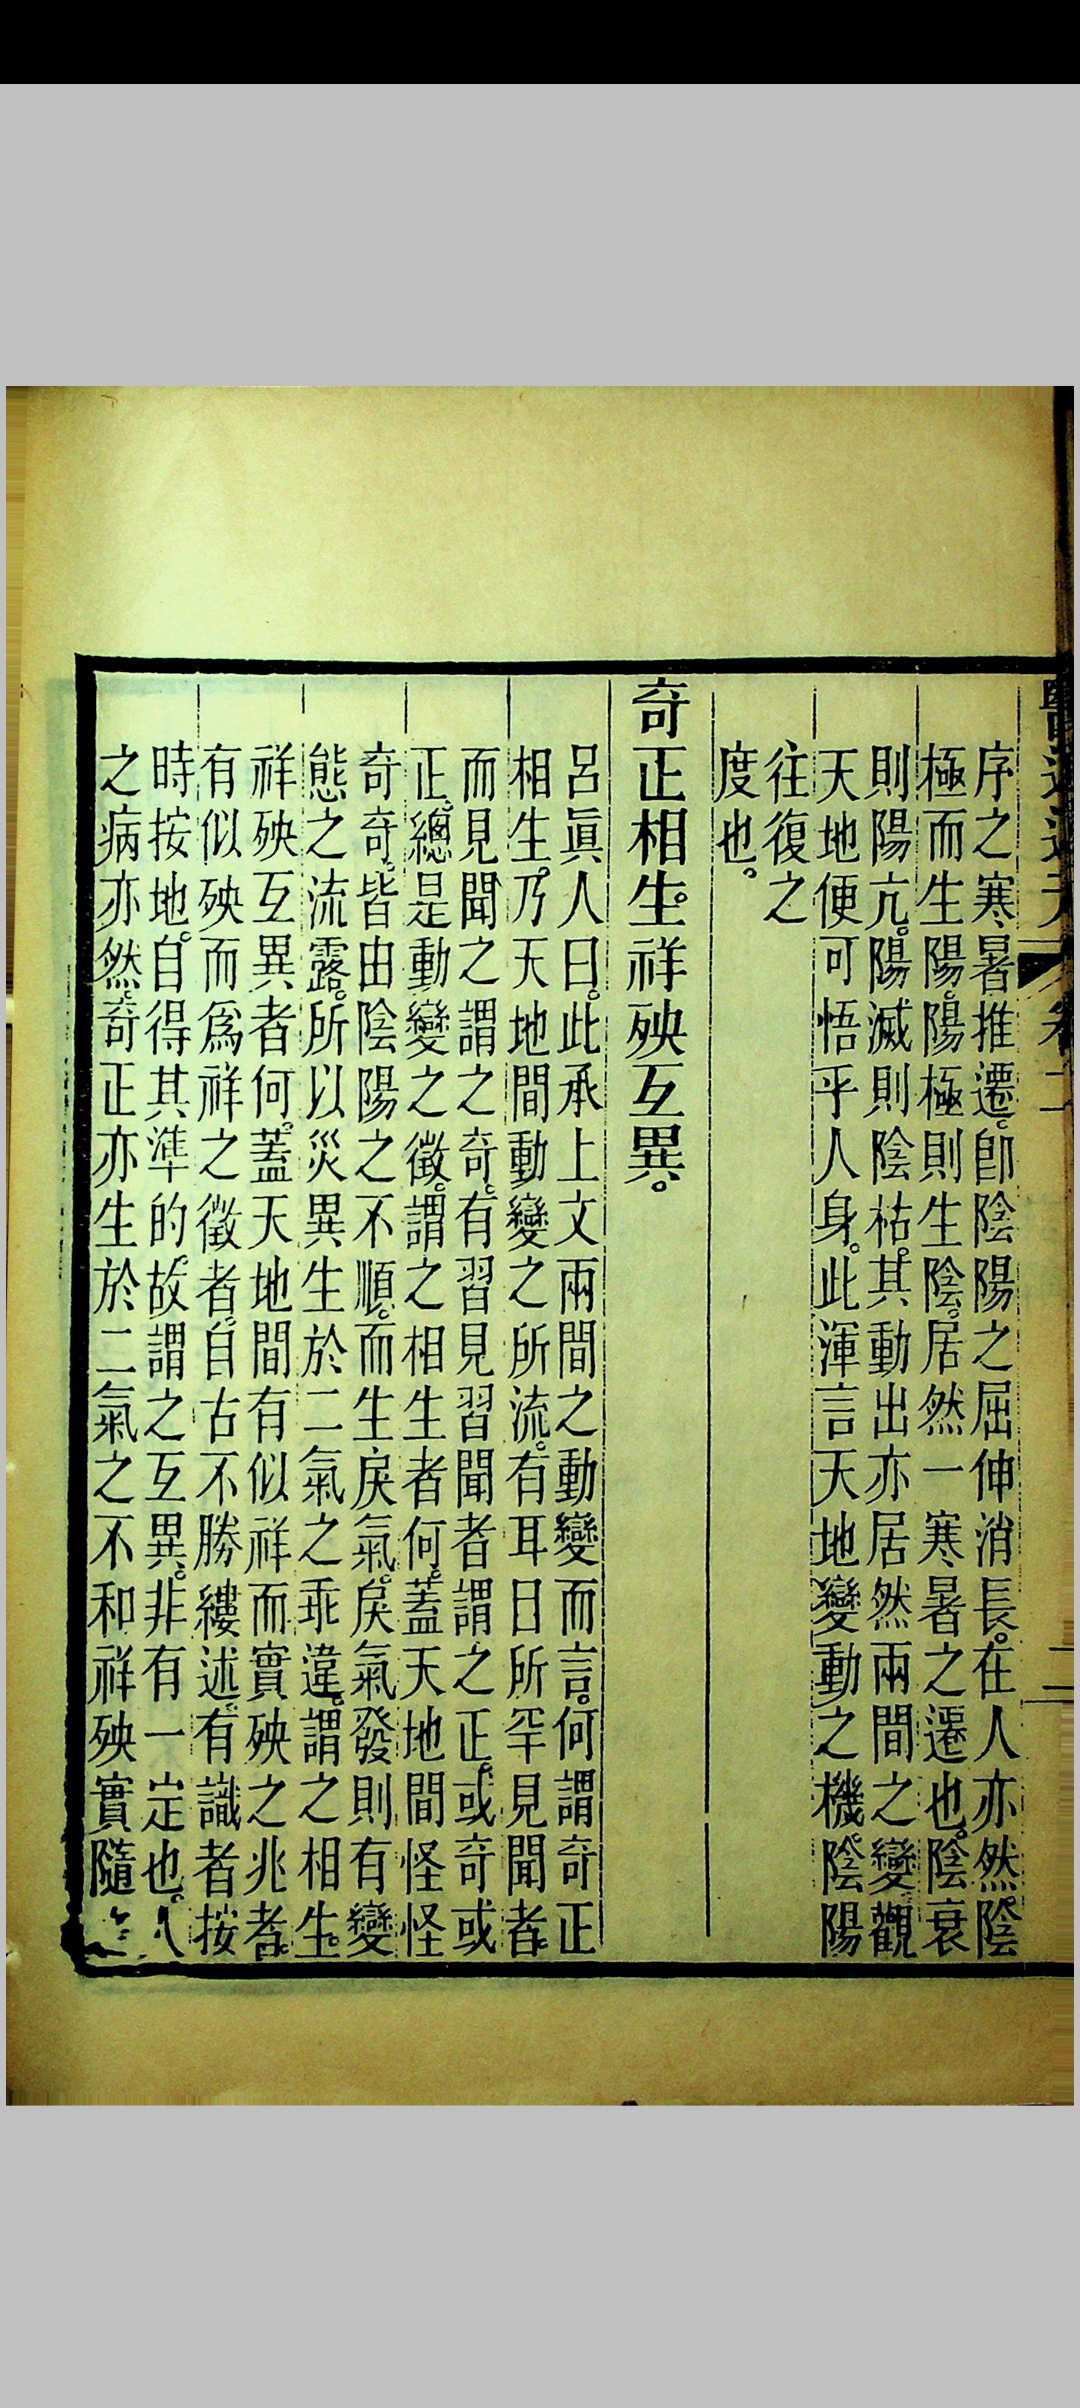 序之寒暑推遷。卽陰陽之屈伸消長。在人亦然。陰
極而生陽。陽極則生陰。居然一寒暑之遷也。陰衰
則陽亢。陽滅則陰枯。其動出亦居然兩間之變。觀
天地便可悟乎人身。此渾言天地變動之機。陰陽
往復之
度也。
奇正相生。祥殃互異。
呂眞人曰。此承上文兩間之動變而言。何謂奇正
相生。乃天地間動變之所流。有耳目所罕見聞者。
而見聞之謂之奇。有習見習聞者謂之正。或奇或
正。總是動變之徵。謂之相生者何。蓋天地間怪怪
奇奇。皆由陰陽之不順。而生戾氣。戾氣發則有變
態之流露。所以災異生於二氣之乖違。謂之相生。
祥殃互異者何。蓋天地間有似祥而實殃之兆者。
有似殃而爲祥之徵者。自古不勝縷述。有識者按
時按地。自得其準的。故謂之互異。非有一定也。人
之病亦然。奇正亦生於二氣之不和祥殃實隨